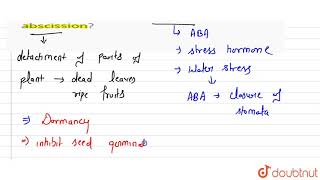 abscission?
detachment of parts of
plant → dead leaves
ripe fruits
⇒ Dormancy
⇒ inhibit seed germinat
↳ ABA
→ stress hormone
→ Water stress
ABA → closure of
stomata
doubtnut